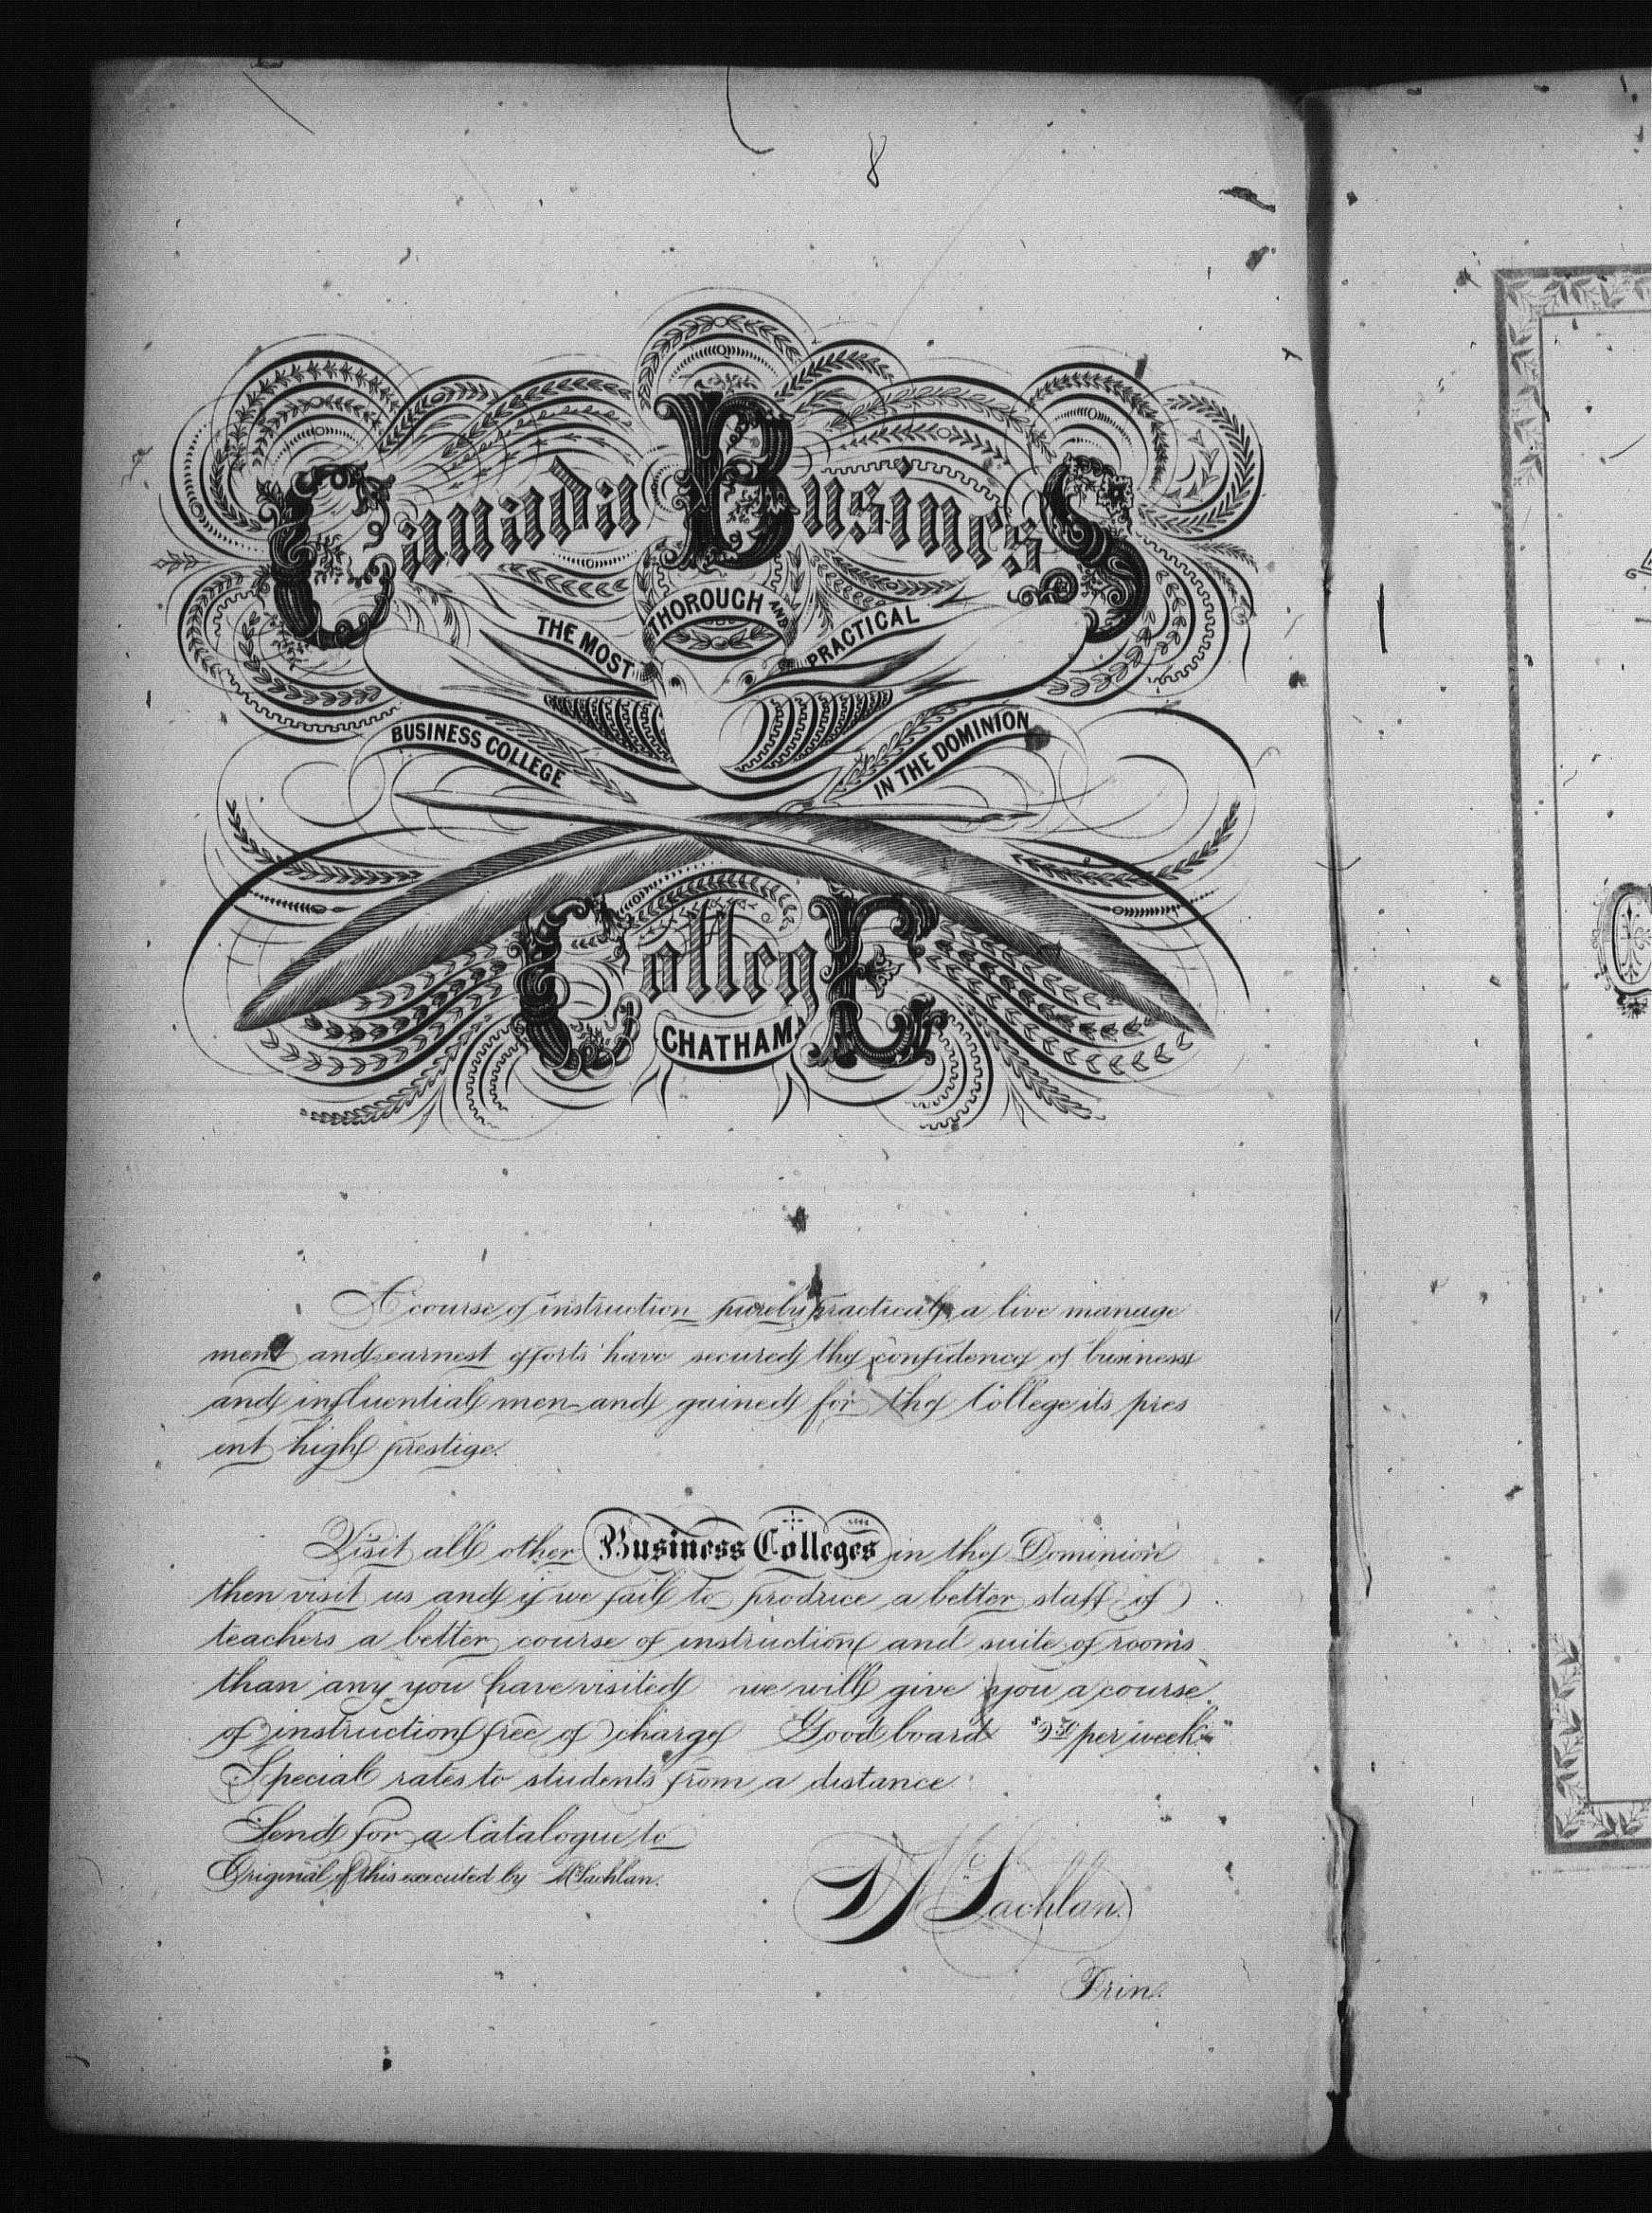 8
Canada Business
THE MOST THOROUGH AND PRACTICAL
BUSINESS COLLEGE IN THE DOMINION
College
CHATHAM
A course of instruction purely practical, a live manage
ment and earnest efforts have secured the confidence of business
and influential men and gained for the College its pres
ent high prestige.
Visit all other Business Colleges in the Dominion
then visit us and if we fail to produce a better staff of
teachers a better course of instruction and suite of rooms
than any you have visited we will give you a course
of instruction free of charge Good board per week
Special rates to students from a distance
Send for a Catalogue to
Original of this executed by McLachlan.
D McLachlan.
Prin.